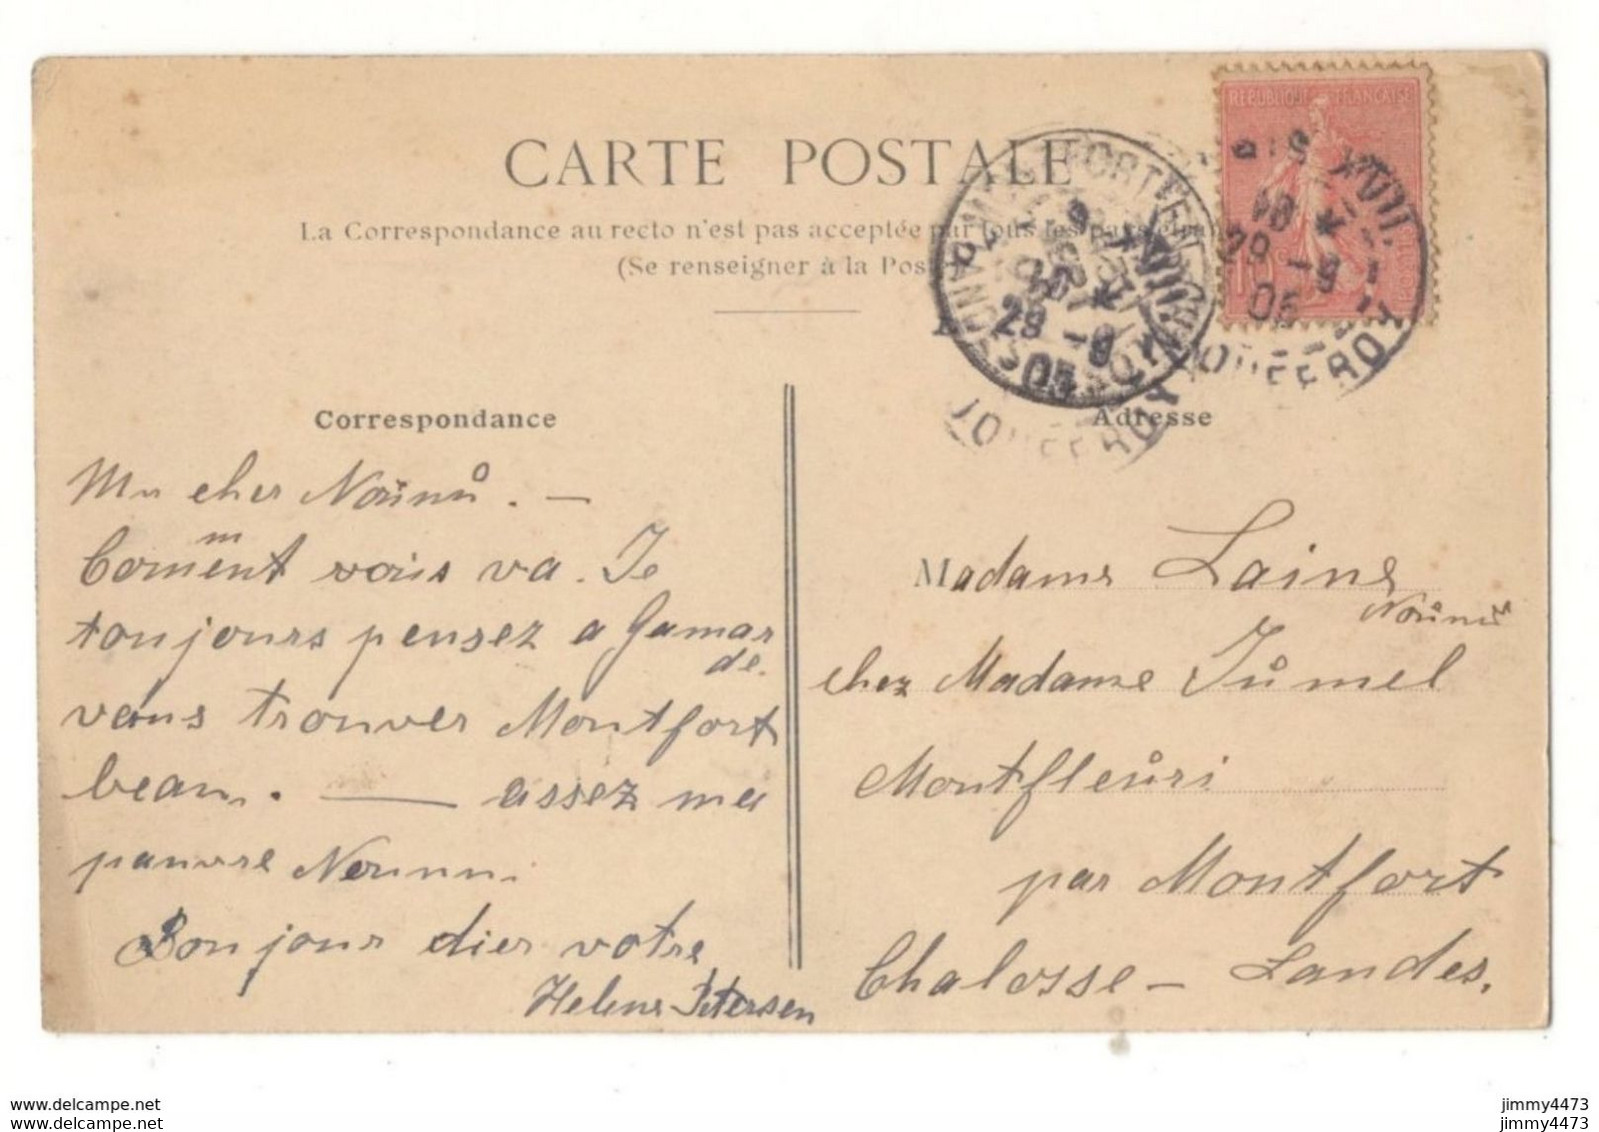 CARTE POSTALE
La Correspondance au recto n'est pas acceptée par tous les pays
(Se renseigner à la Pos
REPUBLIQUE FRANÇAISE
29 -9
05
29 -9
05
JOUFFROY
JOUFFROY
Correspondance
Adresse
Mn cher Noünů. —
Coment vois va. Je
m
toujours pensez a Gamar
de.
vous trouver Montfort
beau. — assez ma
pauvre Nounu.
Bonjour dier votre
Helene Petersen
Madame Laine
Noůnů
chez Madame Jůmel
Montfleůri
par Montfort
Chalosse — Landes.
www.delcampe.net
www.delcampe.net
jimmy4473
jimmy4473